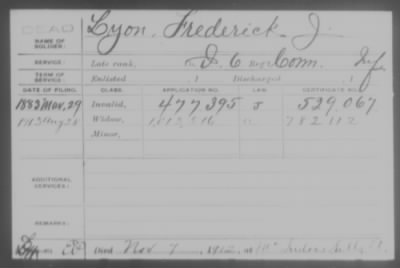 DEAD
Lyon, Frederick J.
NAME OF SOLDIER:
SERVICE: Late rank, D, 6 Reg't Conn. Inf
TERM OF SERVICE: Enlisted , 1 Discharged , 1
DATE OF FILING. CLASS. APPLICATION NO. LAW. CERTIFICATE NO.
1883 Nov, 29 Invalid, 477395 529067
Widow,
Minor,
ADDITIONAL SERVICES:
REMARKS:
Died Nov 7, at